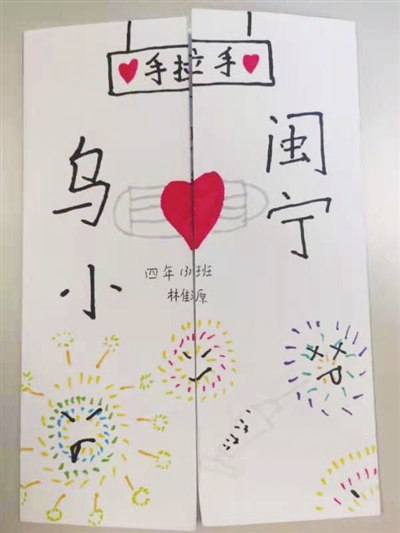 手拉手
乌小
闽宁
四年(5)班
林佳源